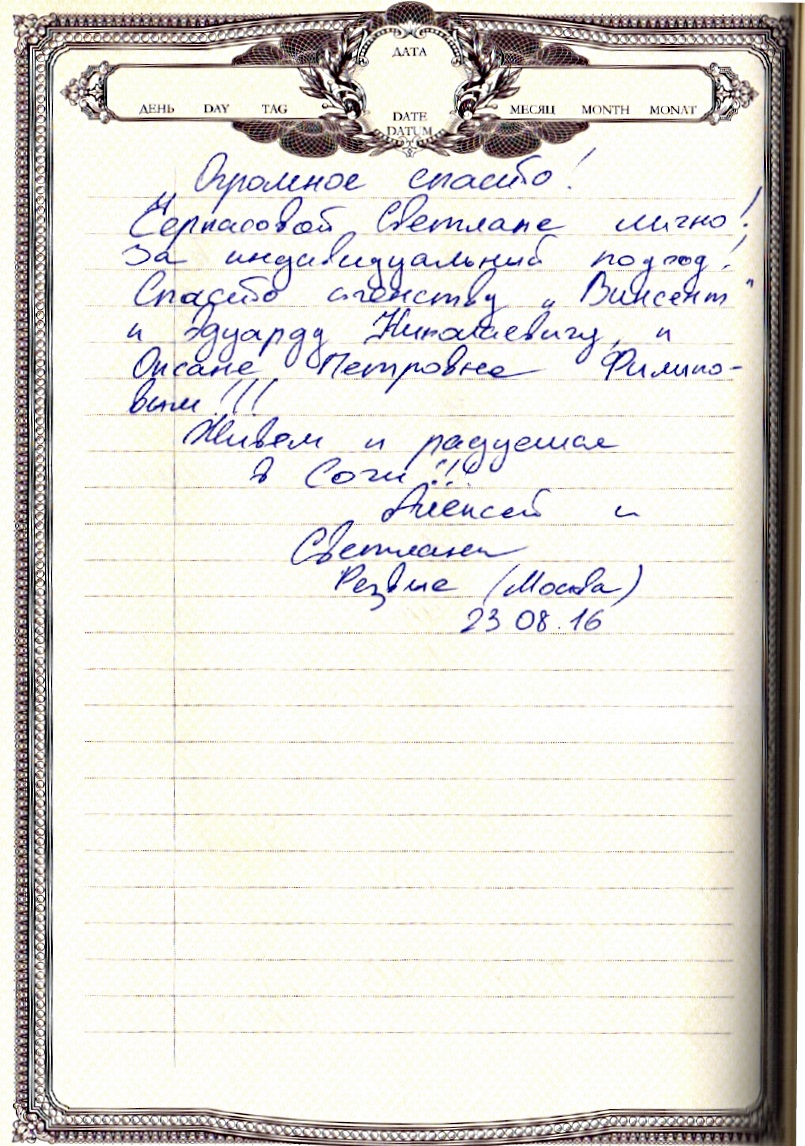 ДАТА
ДЕНЬ DAY TAG
DATE
DATUM
МЕСЯЦ MONTH MONAT
Огромное спасибо!
Светлане лично!
За индивидуальный подход!
Спасибо агенству „Винсент"
и Эдуарду Николаевичу, и
Оксане Петровне Филипо-
вым!!!
Живем и радуемся
в Сочи!!!
Алексей и
Светлана
Резвые (Москва)
23 08.16